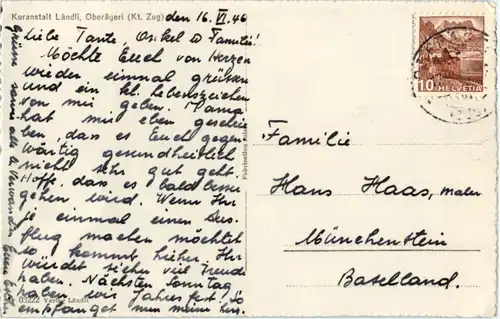 Kuranstalt Ländli, Oberägeri (Kt. Zug)
den 16. VI. 46
Liebe Tante, Onkel & Familie!
Möchte Euch von Herzen
wieder einmal grüssen
und ein kl. Lebenszeichen
von mir geben. Mama
hat mir eben geschrie
ben, dass es Euch gegen
wärtig gesundheitlich
nicht sehr gut geht.
Hoffe, dass es bald besser
gehen wird. Wenn Ihr
je einmal einen Aus-
flug machen möchtet
so kommt hieher. Ihr
würdet sicher viel Freude
haben. Nächsten Sonntag
haben wir Jahresfest. So
empfanget nun meine herz.
Grüsse sowie alle l. Verwandten Eure
03222 Verlag Ländli
Fabrication
10 HELVETIA
Familie
Hans Haas, maler
Münchenstein
Baselland.